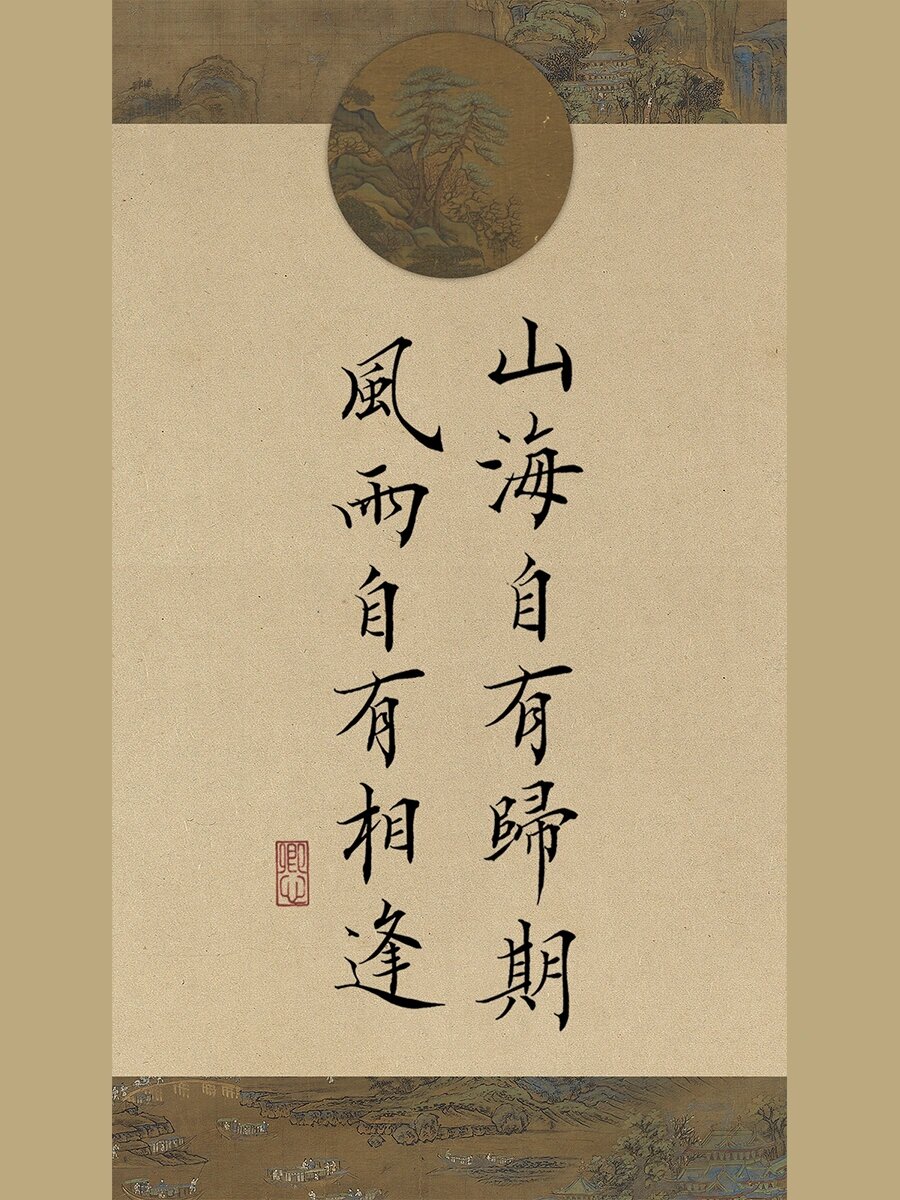 山海自有歸期
風雨自有相逢
卿心